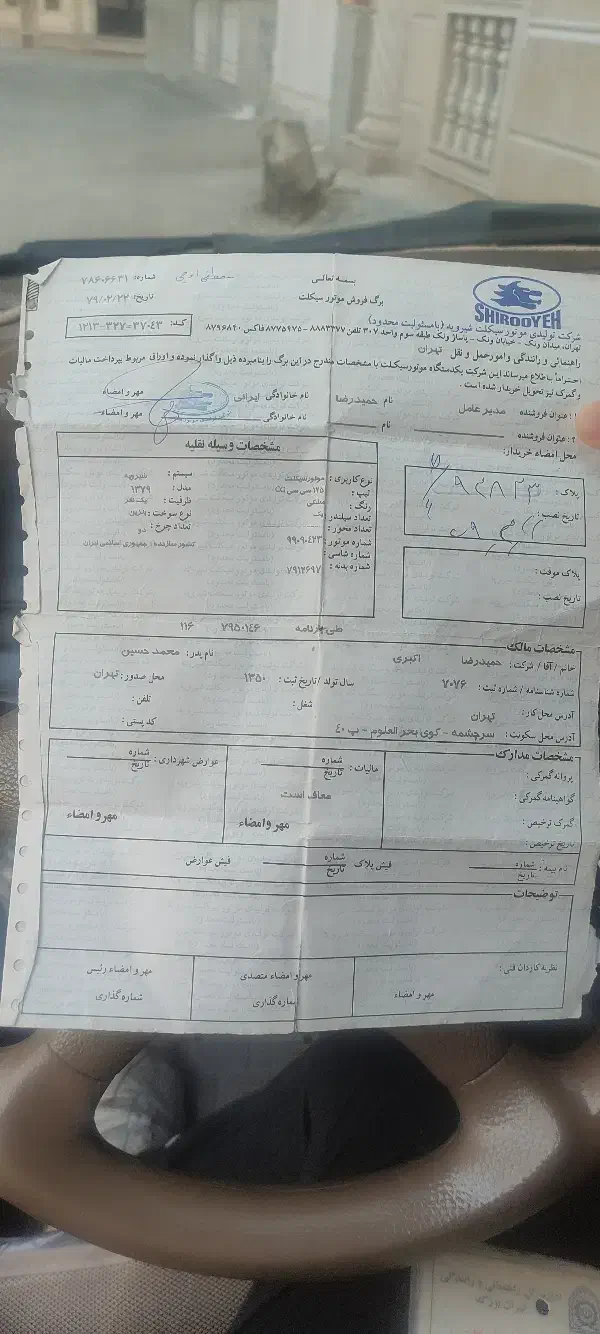 بسمه تعالی
برگ فروش موتور سیکلت
شماره: ۷۸۶۰۶۶۳۱
تاریخ: ۷۹/۰۲/۲۲
کد: ۱۲۱۳-۳۲۷-۳۷۰۴۳
SHIROOYEH
شرکت تولیدی موتور سیکلت شیرویه (با مسئولیت محدود)
تهران، میدان ونک - خیابان ونک - پاساژ ونک طبقه سوم واحد ۳۰۷ تلفن ۸۸۸۳۴۷۷ - ۸۷۷۵۹۲۵ فاکس ۸۷۹۶۸۴۰
راهنمائی و رانندگی و امور حمل و نقل تهران
احتراماً به اطلاع میرساند این شرکت یکدستگاه موتورسیکلت با مشخصات مندرج در این برگ را بنامبرده ذیل واگذار نموده و اوراق مربوط بپرداخت مالیات
وگمرک نیز تحویل خریدار شده است.
۱: عنوان فروشنده مدیر عامل نام حمیدرضا نام خانوادگی ایرانی مهر و امضاء
۲: عنوان فروشنده نام نام خانوادگی مهر و امضاء
محل امضاء خریدار:
پلاک:
تاریخ نصب:
پلاک موقت:
تاریخ نصب:
مشخصات وسیله نقلیه
نوع کاربری: موتورسیکلت سیستم: شیرویه
تیپ: ۱۲۵ سی سی CG مدل: ۱۳۷۹
رنگ: مشکی ظرفیت: یک نفر
تعداد سیلندر: یک نوع سوخت: بنزین
تعداد محور: تعداد چرخ: دو
شماره موتور: ۹۹۰۹۰۴۲۳ کشور سازنده: جمهوری اسلامی ایران
شماره شاسی:
شماره بدنه: ۷۹۱۲۶۹۷
۷۹۵۰۱۴۶ ۱۱۶
مشخصات مالک
خانم / آقا / شرکت: حمیدرضا اکبری نام پدر: محمد حسین
شماره شناسنامه / شماره ثبت: ۷۰۷۶ سال تولد / تاریخ ثبت: ۱۳۵۰ محل صدور: تهران
آدرس محل کار: تهران شغل: تلفن:
آدرس محل سکونت: سرچشمه - کوی بحرالعلوم - پ ۴۰ کد پستی:
مشخصات مدارک
پروانه گمرکی:
گواهینامه گمرکی:
گمرک ترخیص:
تاریخ ترخیص:
مالیات: شماره
تاریخ
معاف است
مهر و امضاء
عوارض شهرداری: شماره
تاریخ
مهر و امضاء
نام بیمه: شماره
تاریخ
فیش پلاک شماره
تاریخ
فیش عوارض
توضیحات
نظریه کاردان فنی:
مهر و امضاء
مهر و امضاء متصدی
شماره گذاری
مهر و امضاء رئیس
شماره گذاری